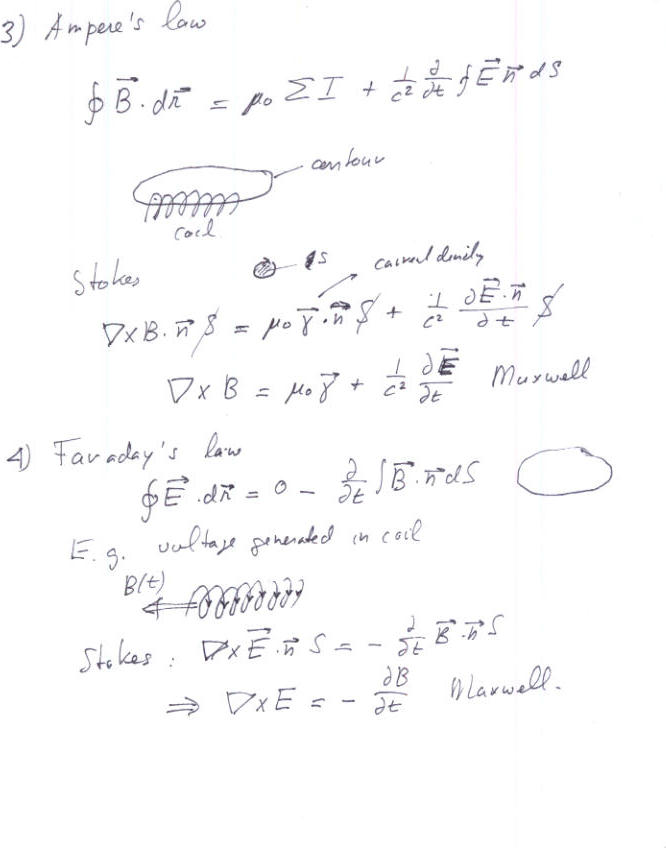 3) Ampere's law
∮ B⃗ · dr⃗ = μ₀ Σ I + 1/c² ∂/∂t ∮ E⃗ n⃗ dS
contour
coil
Stokes
S
current density
∇×B · n⃗ S = μ₀ γ⃗ · n⃗ S + 1/c² ∂E⃗·n⃗/∂t S
∇×B = μ₀ γ⃗ + 1/c² ∂E⃗/∂t Maxwell
4) Faraday's law
∮ E⃗ · dr⃗ = 0 − ∂/∂t ∫ B⃗ · n⃗ dS
E.g. voltage generated in coil
B(t)
Stokes : ∇×E⃗ · n⃗ S = − ∂/∂t B⃗ · n⃗ S
⇒ ∇×E = − ∂B/∂t Maxwell.